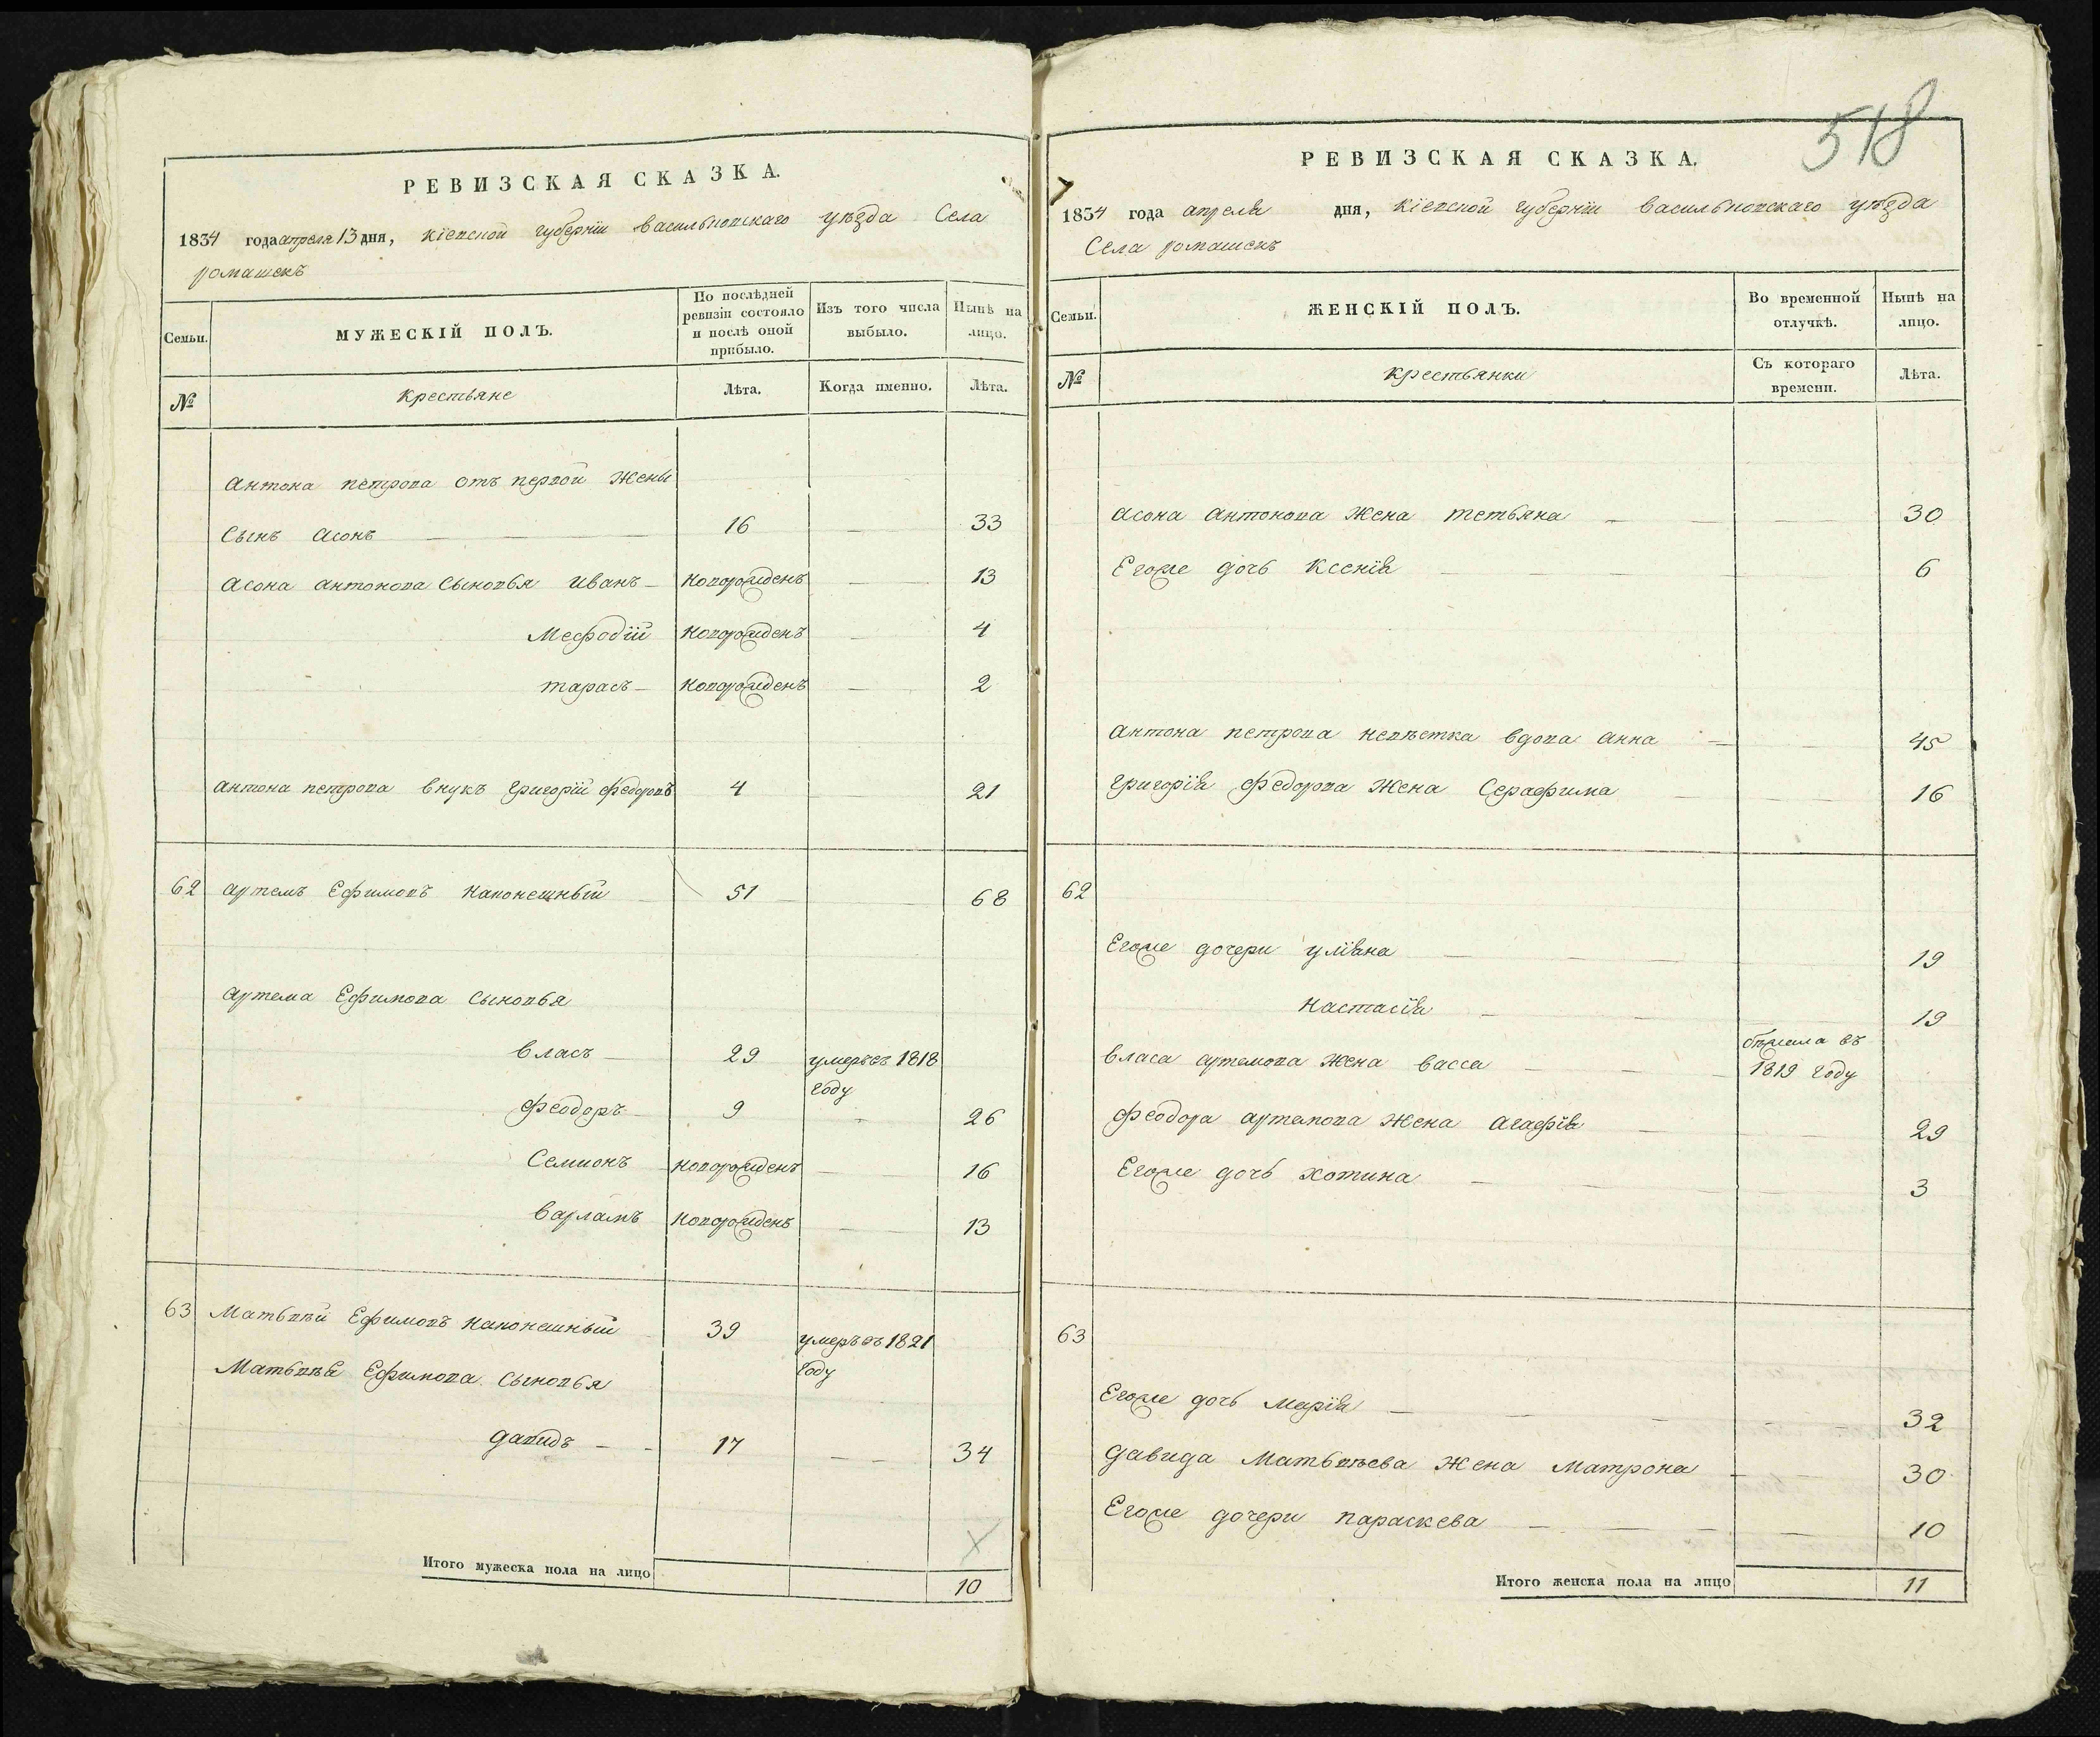 РЕВИЗСКАЯ СКАЗКА.
1834 года апреля 13 дня, Кіевской губерніи Васильковскаго уѣзда Села
ромашекъ
Семьи.
МУЖЕСКІЙ ПОЛЪ.
По послѣдней ревизіи состояло и послѣ оной прибыло.
Изъ того числа выбыло.
Нынѣ на лицо.
№
Крестьяне
Лѣта.
Когда именно.
Лѣта.
Антона петрова отъ первой жены
сынъ Асонъ 16 33
Асона Антонова сыновья Иванъ новорожденъ 13
Мефодій новорожденъ 4
тарасъ новорожденъ 2
Антона петрова внукъ григорій федоровъ 4 21
62 Артемъ Ефимовъ Наконешный 51 68
Артема Ефимова сыновья
власъ 29 умеръ въ 1818
году
феодоръ 9 26
Семионъ новорожденъ 16
варламъ новорожденъ 13
63 Матьвѣй Ефимовъ Наконешный 39 умеръ въ 1821
году
Матьвѣя Ефимова сыновья
давидъ 17 34
Итого мужеска пола на лицо 10
518
РЕВИЗСКАЯ СКАЗКА.
1834 года апреля дня, Кіевской губерніи Васильковскаго уѣзда
Села ромашекъ
Семьи.
ЖЕНСКІЙ ПОЛЪ.
Во временной отлучкѣ.
Нынѣ на лицо.
№
Крестьянки
Съ котораго времени.
Лѣта.
Асона Антонова жена тетьяна 30
Егоже дочь Ксенія 6
Антона петрова невѣстка вдова Анна 45
григорія федорова жена Серафима 16
62
Егоже дочери уліяна 19
Настасія 19
власа Артемова жена васса бѣжала въ
1819 году
феодора Артемова жена Агафія 29
Егоже дочь хотина 3
63
Егоже дочь Марія 32
давида Матьвѣева жена Матрона 30
Егоже дочери параскева 10
Итого женска пола на лицо 11